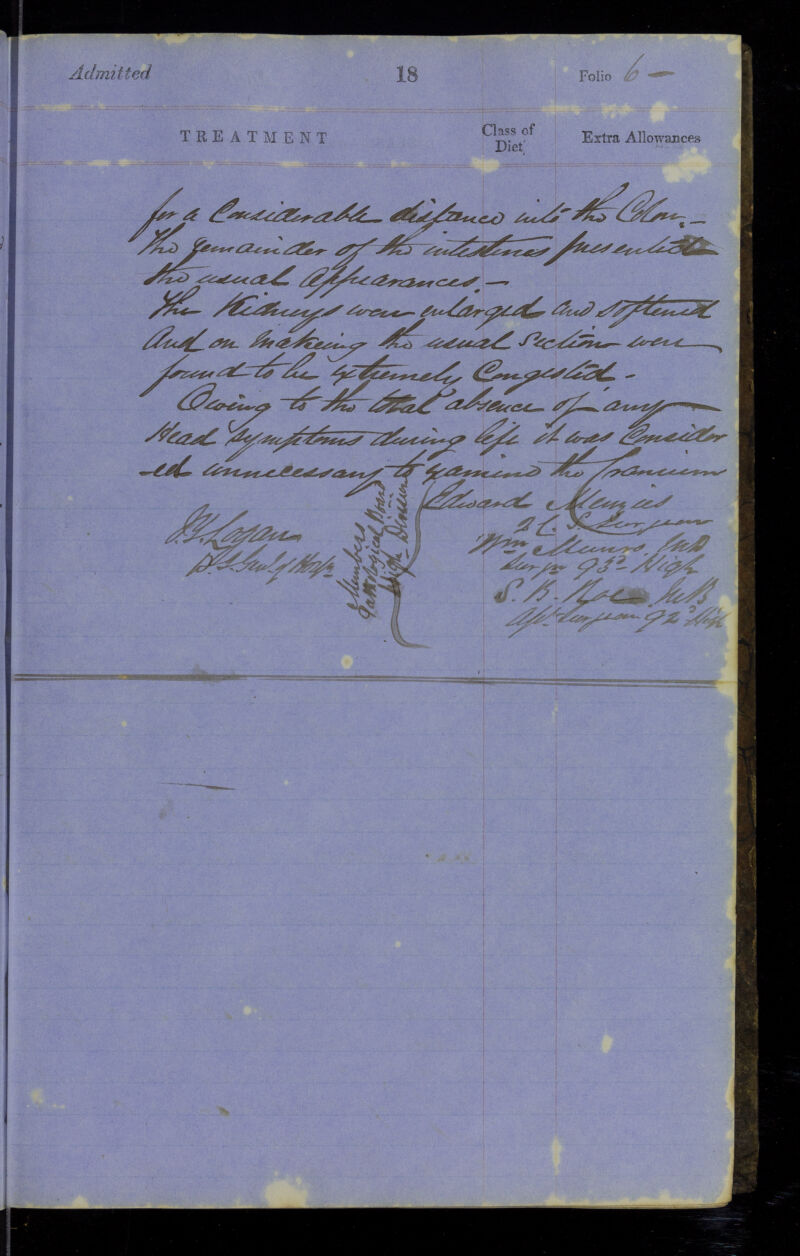 Admitted 18 Folio 6 —
TREATMENT Class of Diet Extra Allowances
for a Considerable distance into the Colon. —
The remainder of the intestines presented
the usual appearances. —
The Kidneys were enlarged and softened
And on makeing the usual Section were
found to be extremely Congested -
Owing to the total absence of any
Head symptoms during life it was Consider
-ed unnecessary to examine the Cranium
J. G. Logan
D. I. Genl. of Hosp.
Members
Pathological Board
High. Division
Edward Menzies
2 C. S. Surgeon
Wm. Munro MD
Surgn 93d High
S. B. Roe MB
Asst. Surgeon 92d High